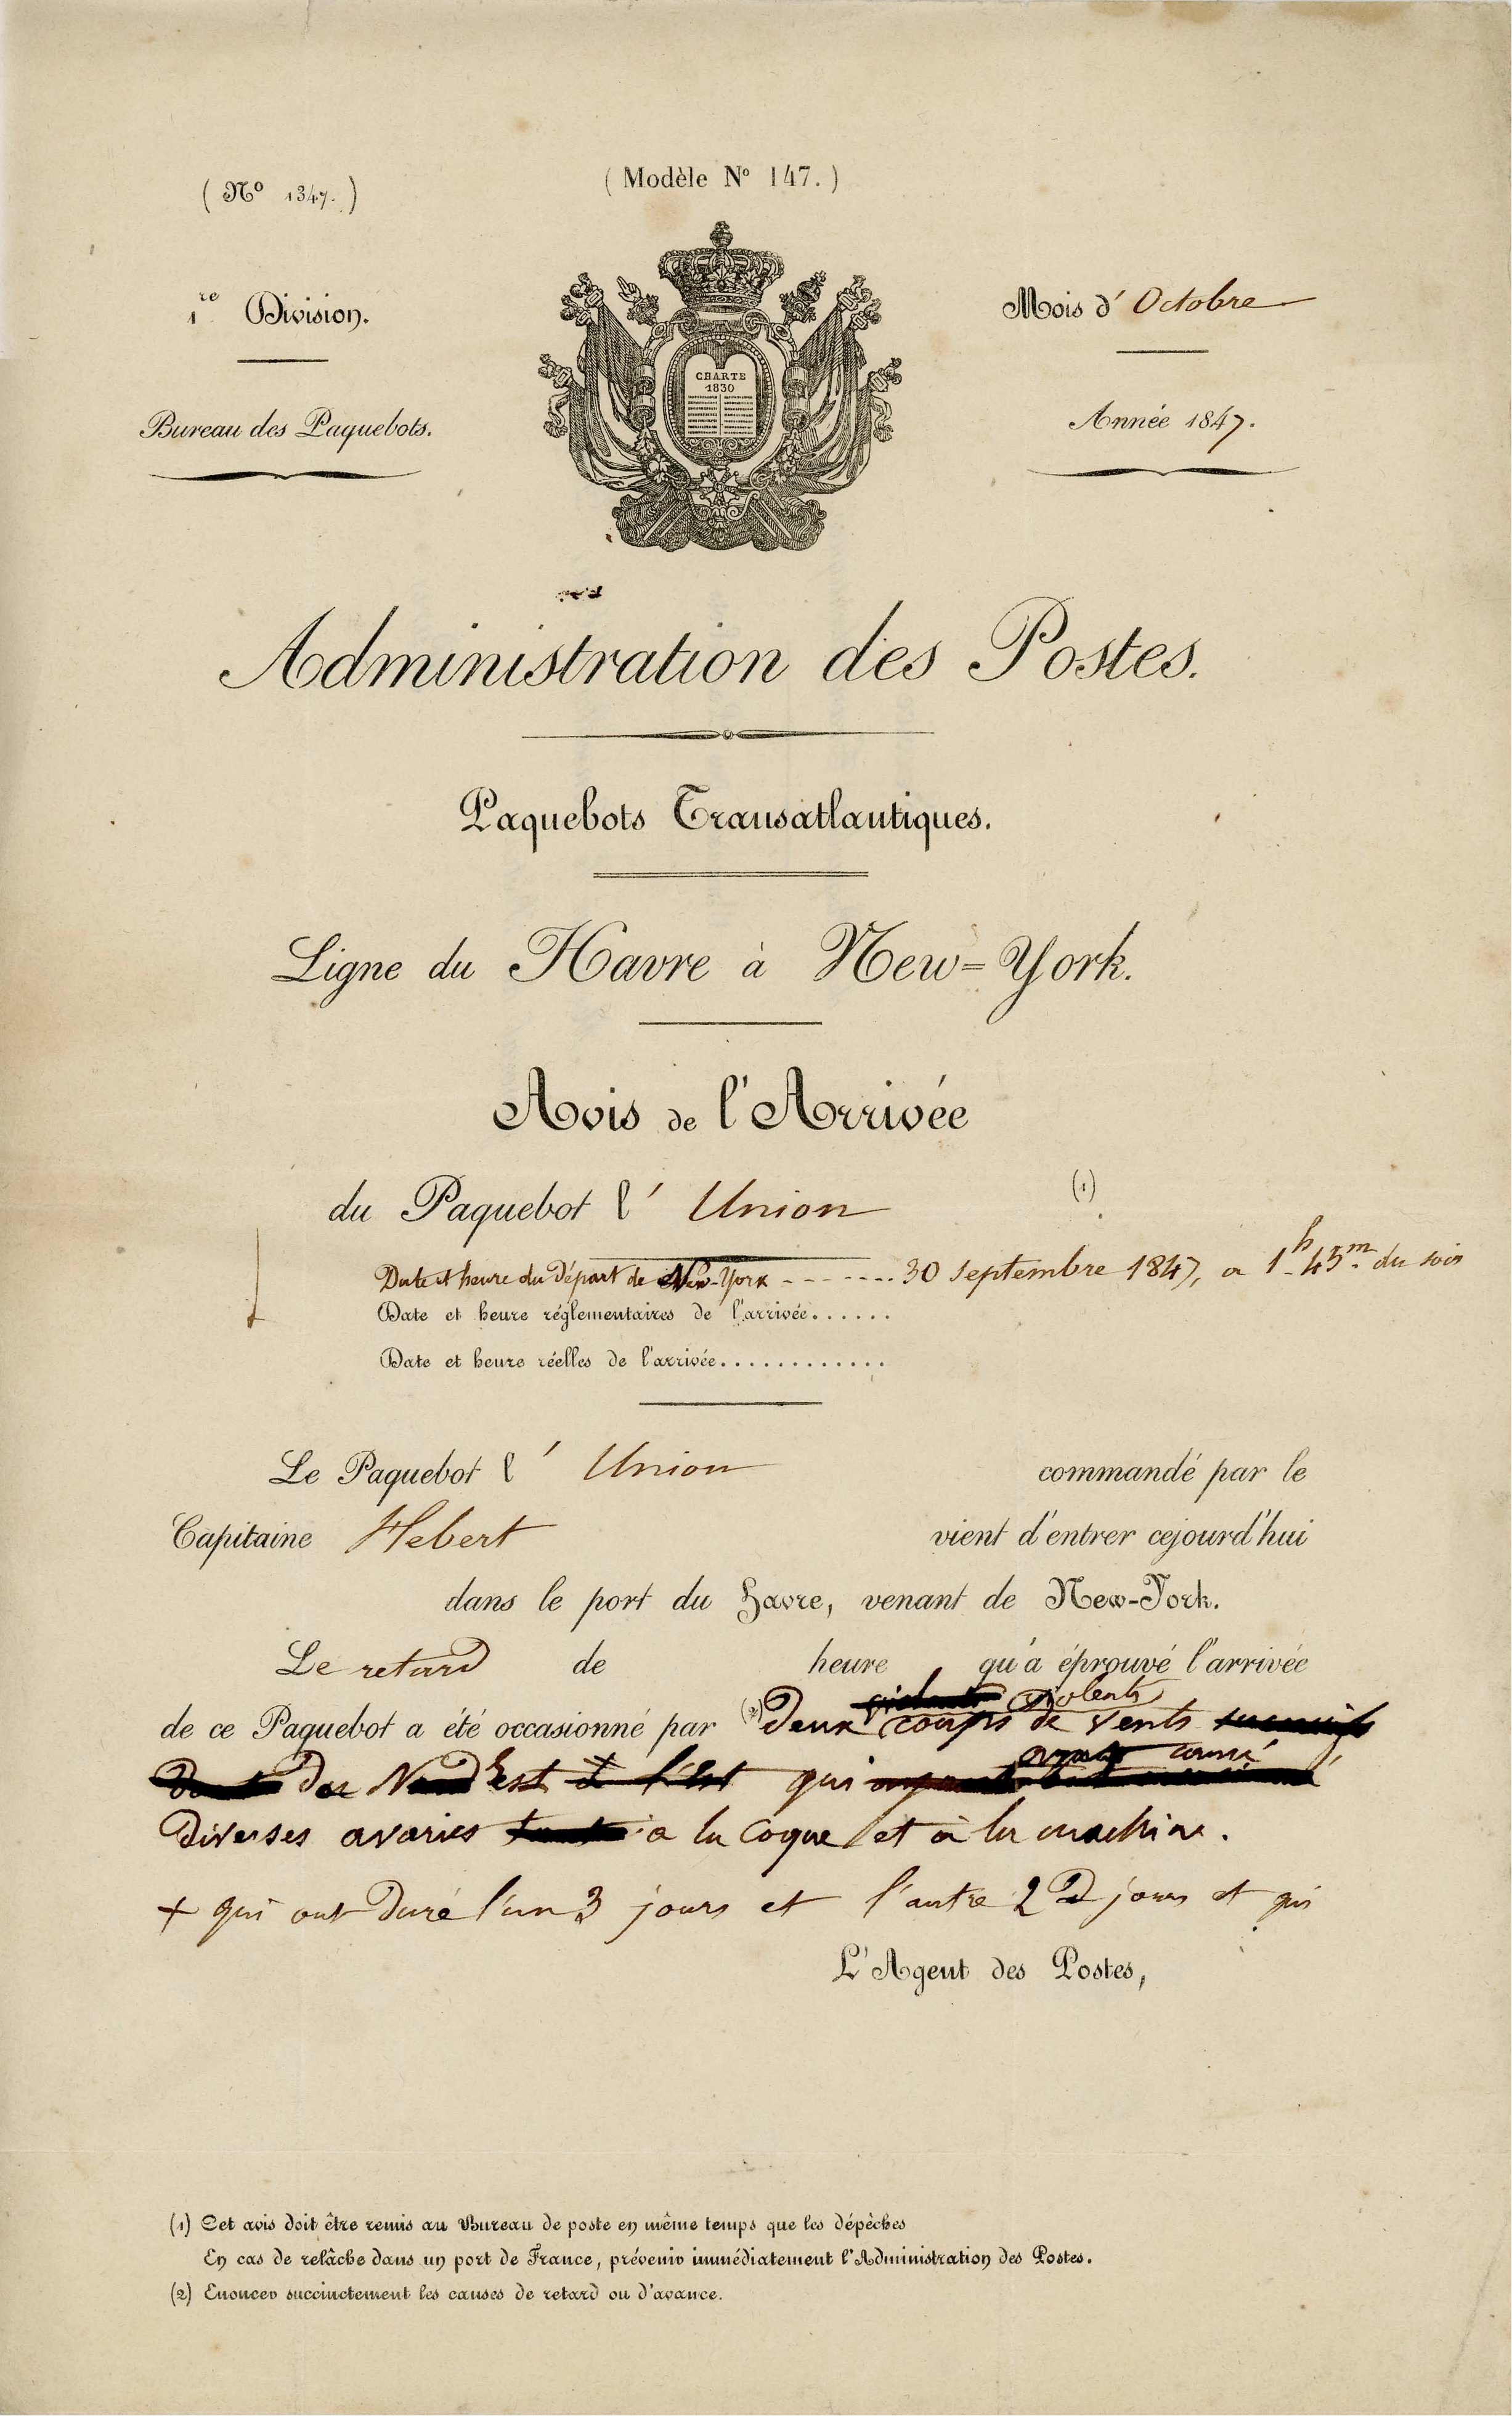 (Modèle Nº 147.)
(Nº 1347.)
1re Division.
Bureau des Paquebots.
CHARTE
1830
Mois d'Octobre
Année 1847.
Administration des Postes.
Paquebots Transatlantiques.
Ligne du Havre à New=York.
Avis de l'Arrivée
du Paquebot l'Union (1)
Date et heure du Départ de New-York - - - - - - ... 30 Septembre 1847, a 1h 45m du soir
Date et heure réglementaires de l'arrivée......
Date et heure réelles de l'arrivée............
Le Paquebot l'Union commandé par le
Capitaine Hebert vient d'entrer cejourd'hui
dans le port du Havre, venant de New-York.
Le retard de heure qu'a éprouvé l'arrivée
violents
de ce Paquebot a été occasionné par (2) Deux coups de vents
causé
de Nord Est et l'Est qui
diverses avaries a la coque et à la machine.
+ qui ont duré l'un 3 jours et l'autre 2 jours et qui
L'Agent des Postes,
(1) Cet avis doit être remis au Bureau de poste en même temps que les dépêches
En cas de relâche dans un port de France, prévenir immédiatement l'Administration des Postes.
(2) Enoncer succinctement les causes de retard ou d'avance.